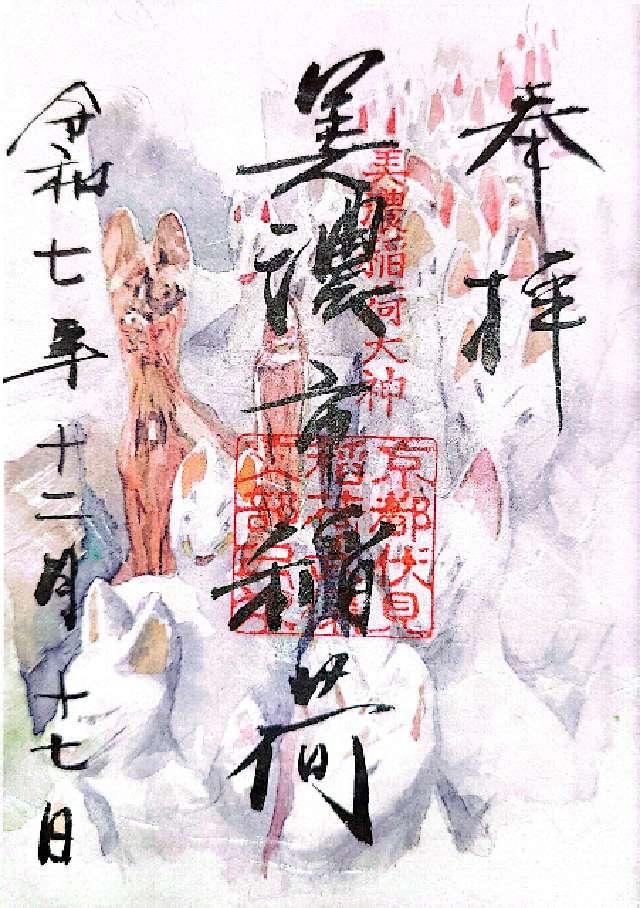 奉拝
美濃稲荷大神
美濃市稲荷
京都伏見
令和七年十二月十七日